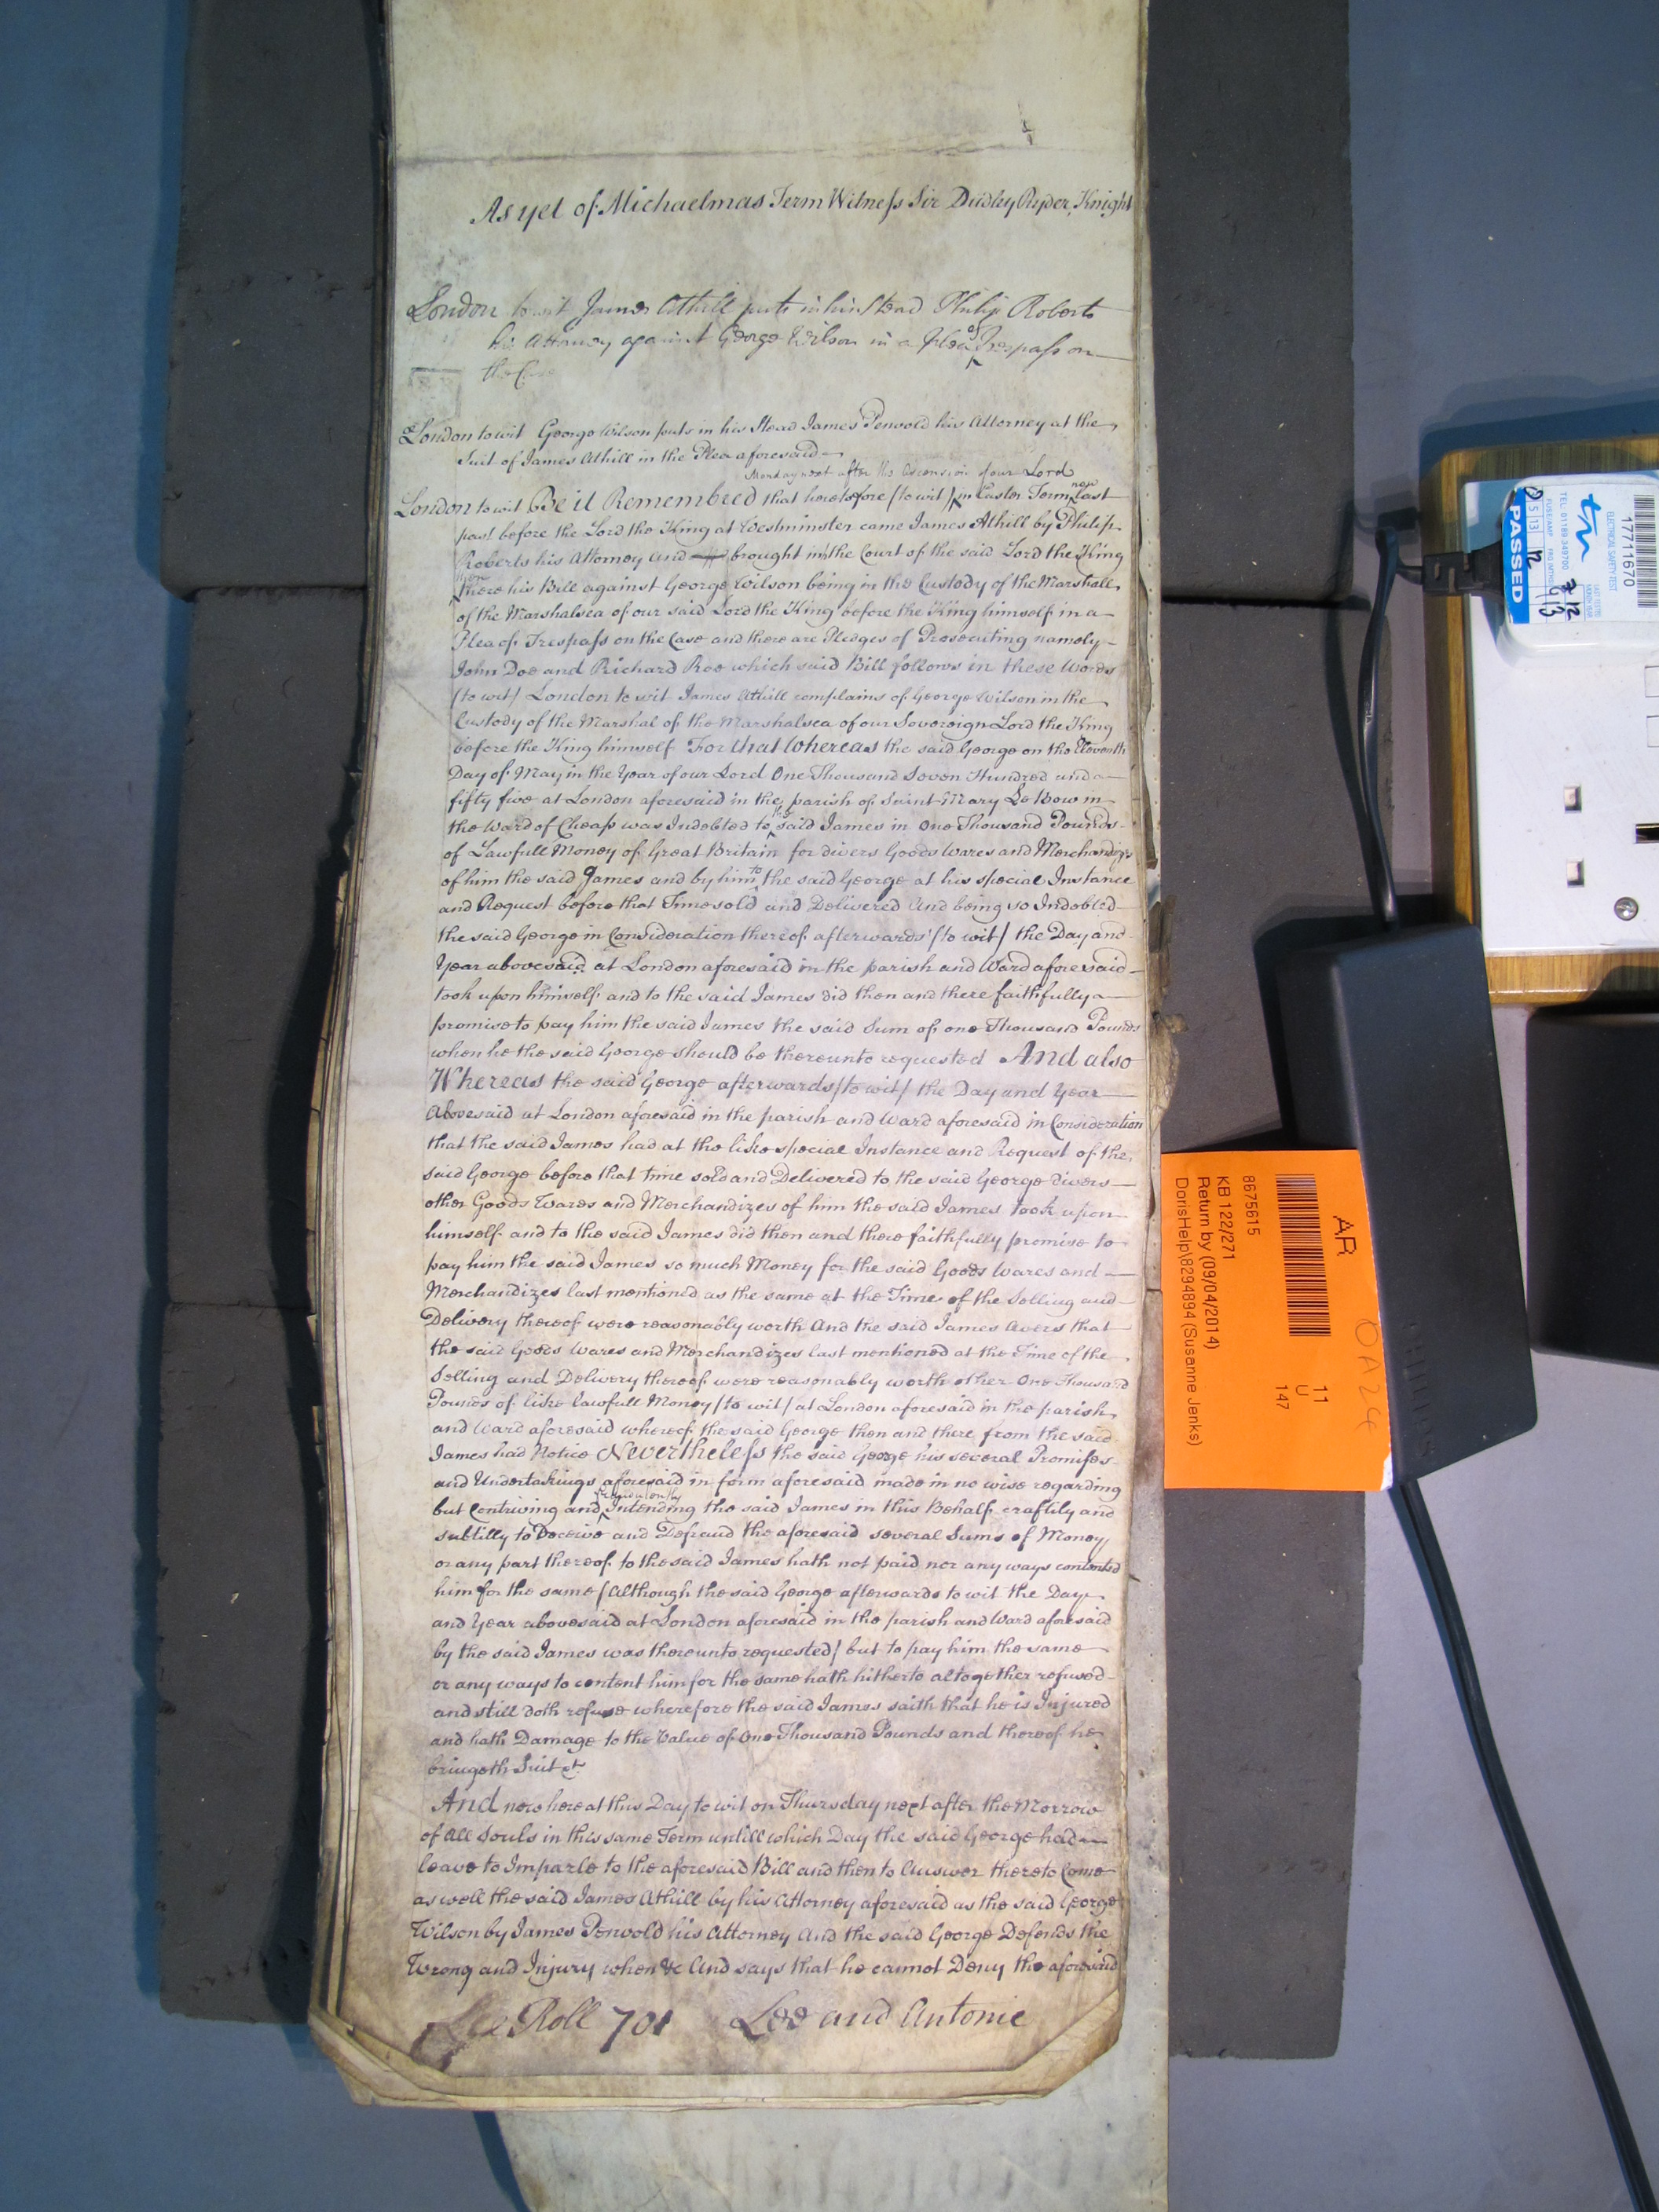 As yet of Michaelmas Term Witness Sir Dudley Ryder, Knight
London to wit James Athill puts in his Stead Philip Roberts
his Attorney against George Wilson in a Plea of Trespass on
the Case
London to wit George Wilson puts in his Stead James Penvold his Attorney at the
Suit of James Athill in the Plea aforesaid
Monday next after the Ascension of our Lord
London to wit Be it Remembred that heretofore (to wit) in Easter Term now last
past before the Lord the King at Westminster came James Athill by Philip
Roberts his Attorney and brought into the Court of the said Lord the King
then
there his Bill against George Wilson being in the Custody of the Marshall
of the Marshalsea of our said Lord the King before the King himself in a
Plea of Trespass on the Case and there are Pledges of Prosecuting namely
John Doe and Richard Roe which said Bill follows in these Words
(to wit) London to wit James Athill complains of George Wilson in the
Custody of the Marshal of the Marshalsea of our Sovereign Lord the King
before the King himself For that Whereas the said George on the Eleventh
Day of May in the Year of our Lord One Thousand Seven Hundred and
fifty five at London aforesaid in the parish of Saint Mary Le Bow in
the Ward of Cheap was Indebted to the said James in One Thousand Pounds
of Lawfull Money of Great Britain for divers Goods Wares and Merchandizes
of him the said James and by him to the said George at his special Instance
and Request before that Time sold and Delivered And being so Indebted
the said George in Consideration thereof afterwards (to wit) the Day and
Year abovesaid at London aforesaid in the parish and Ward aforesaid
took upon himself and to the said James did then and there faithfully
promise to pay him the said James the said Sum of one Thousand Pounds
when he the said George should be thereunto requested And also
Whereas the said George afterwards (to wit) the Day and Year
Abovesaid at London aforesaid in the parish and Ward aforesaid in Consideration
that the said James had at the like special Instance and Request of the
said George before that time sold and Delivered to the said George divers
other Goods Wares and Merchandizes of him the said James took upon
himself and to the said James did then and there faithfully promise to
pay him the said James so much Money for the said Goods Wares and
Merchandizes last mentioned as the same at the Time of the Selling and
Delivery thereof were reasonably worth And the said James Avers that
the said Goods Wares and Merchandizes last mentioned at the Time of the
Selling and Delivery thereof were reasonably worth other One Thousand
Pounds of like lawfull Money (to wit) at London aforesaid in the parish
and Ward aforesaid whereof the said George then and there from the said
James had Notice Nevertheless the said George his several Promises
and Undertakings aforesaid in form aforesaid made in no wise regarding
but Contriving and fraudulently Intending the said James in this Behalf craftily and
subtilly to Deceive and Defraud the aforesaid several Sums of Money
or any part thereof to the said James hath not paid nor any ways contented
him for the same (Although the said George afterwards to wit the Day
and Year abovesaid at London aforesaid in the parish and Ward aforesaid
by the said James was thereunto requested) but to pay him the same
or any ways to content him for the same hath hitherto altogether refused
and still doth refuse wherefore the said James saith that he is Injured
and hath Damage to the Value of One Thousand Pounds and thereof he
bringeth Suit &c
And now here at this Day to wit on Thursday next after the Morrow
of All Souls in this same Term untill which Day the said George had
leave to Imparle to the aforesaid Bill and then to Answer thereto Come
as well the said James Athill by his Attorney aforesaid as the said George
Wilson by James Penvold his Attorney And the said George Defends the
Wrong and Injury when &c And says that he cannot Deny the aforesaid
Roll 701 Lee and Antonie
AR
8675615
KB 122/271
Return by (09/04/2014)
DorisHelp\8294894 (Susanne Jenks)
11
U
147
OA24
17711670
ELECTRICAL SAFETY TEST
PASSED
PHILIPS